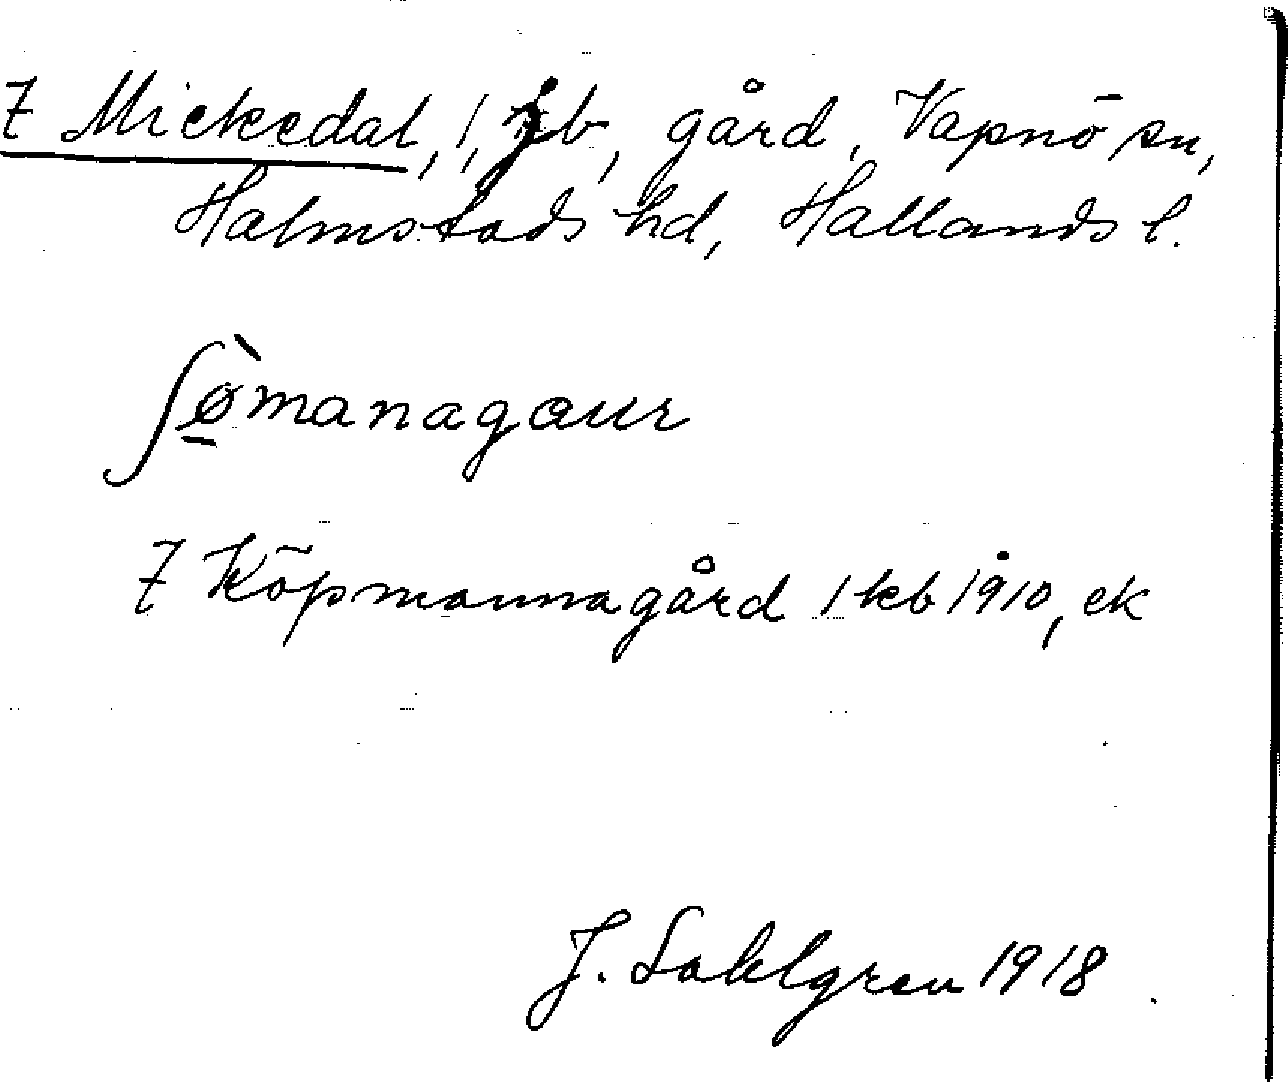 7 Mickedal, 1, jb, gård, Vapnö sn,
Halmstads hd, Hallands l.
ʃø̱̀managaur
7 Köpmannagård 1 kb 1910, ek
J. Sahlgren 1918